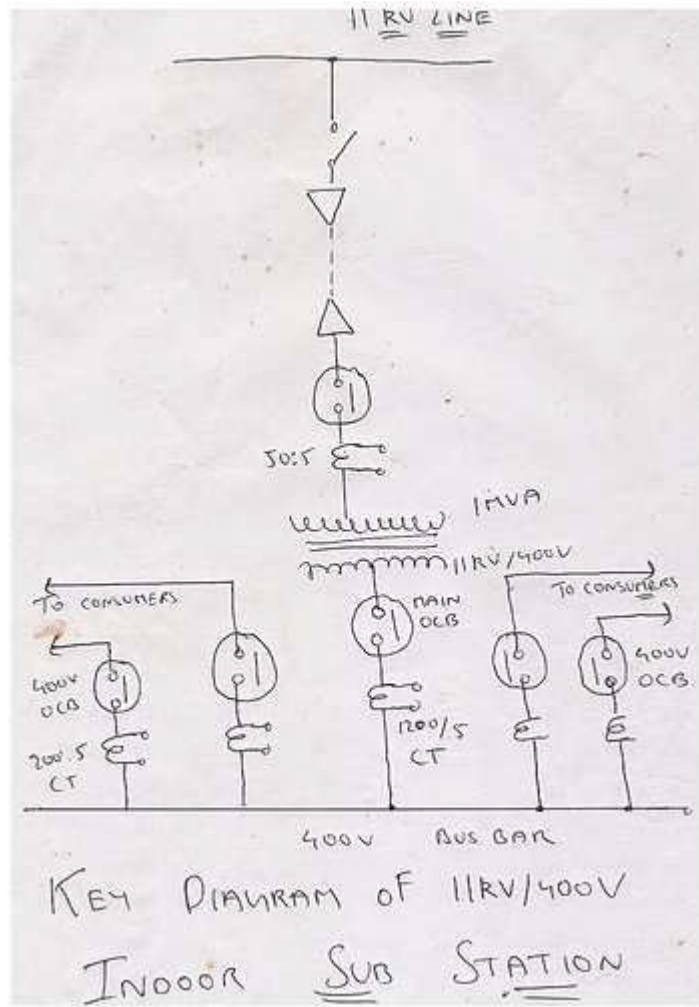 11 KV LINE
50:5
1MVA
11KV/400V
TO CONSUMERS
MAIN
OCB
TO CONSUMERS
400V
OCB
400V
OCB
200:5
CT
1200/5
CT
400V BUS BAR
KEY DIAGRAM OF 11KV/400V
INDOOR SUB STATION